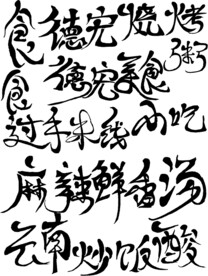 食德宏烧烤
粥
食德宏美食
过手米线小吃
麻辣鲜香汤
云南炒饭酸